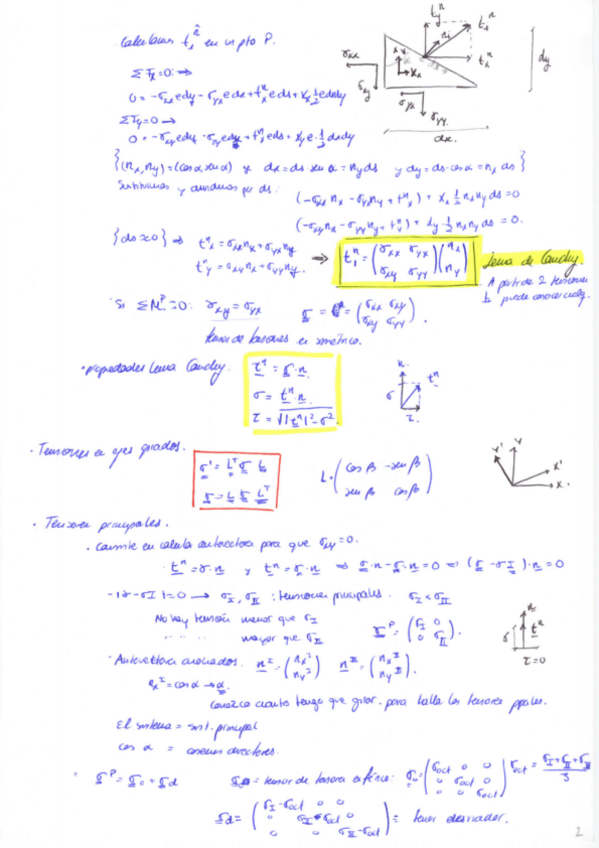 Calculamos t₁ⁿ en un pto P.
ΣFx=0 →
0 = -σxx e dy - σyx e dx + txⁿ e ds + Xx ½ e dx dy
ΣFy=0 →
0 = -σxy e dy - σyy e dx + tyⁿ e ds + Xy e ½ dx dy
{(nx, ny) = (cos α, sen α) y dx = ds sen α = ny ds y dy = ds · cos α = nx ds}
Sustituimos y dividimos por ds:
(-σxx nx - σyx ny + txⁿ) + Xx ½ nx ny ds = 0
(-σxy nx - σyy ny + tyⁿ) + Xy ½ nx ny ds = 0.
{ds ≈ 0} ⇒ txⁿ = σxx nx + σyx ny
tyⁿ = σxy nx + σyy ny.
→ t₁ⁿ = (σxx σyx / σxy σyy)(nx / ny)
Lema de Cauchy.
A partir de 2 tensiones
puede conocer
Si ΣMᴾ=0: σxy = σyx
σ = (σxx σxy / σxy σyy).
tensor de tensiones es simétrico.
· propiedades Lema Cauchy:
tⁿ = σ·n
σ = tⁿ·n
τ = √|tⁿ|²-σ²
n
tⁿ
σ
τ
· Tensiones en ejes girados.
σ' = Lᵀ σ L
σ = L σ Lᵀ
L = (cos β -sen β / sen β cos β)
y' y x' x
· Tensiones principales.
· Consiste en calcular autovectores para que σxy = 0.
tⁿ = σ·n y tⁿ = σ·n ⇒ σ·n - σ·n = 0 ⇒ (σ - σI)·n = 0
-|σ-σI|=0 → σI, σII : tensiones principales. σI < σII
No hay tensión menor que σI
mayor que σII
σᴾ = (σI 0 / 0 σII).
n
tⁿ
σ
τ=0
· Autovectores asociados. nᴵ = (nxᴵ / nyᴵ) nᴵᴵ = (nxᴵᴵ / nyᴵᴵ).
nxᴵ = cos α → α.
conozco cuanto tengo que girar para hallar las tensiones ppales.
El sistema = sist. principal
cos α = cosenos directores.
· σᴾ = σo + σd
σo = tensor de tensiones esférico: σo = (σoct 0 0 / 0 σoct 0 / 0 0 σoct) σoct = (σI+σII+σIII)/3
σd = (σI-σoct 0 0 / 0 σII-σoct 0 / 0 0 σIII-σoct) = tensor desviador.
2